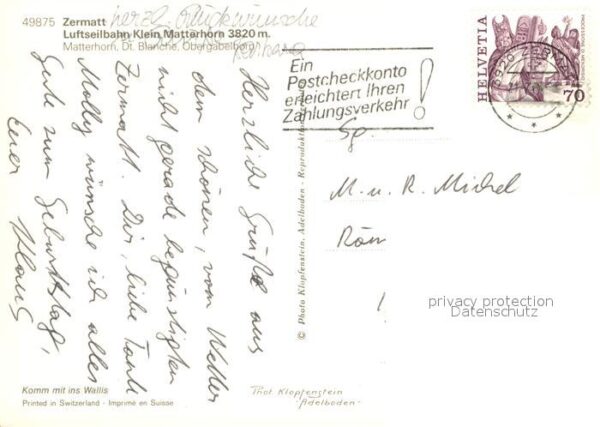 49875 Zermatt
Luftseilbahn Klein Matterhorn 3820 m.
Matterhorn, Dt. Blanche, Obergabelhorn
herzl. Glückwünsche
Herzliche Grüße aus
dem schönen, vom Wetter
nicht gerade begünstigten
Zermatt. Dir, liebe Tante
Molly wünsche ich alles
Gute zum Geburtstag,
Euer Klaus
Komm mit ins Wallis
Printed in Switzerland - Imprimé en Suisse
© Photo Klopfenstein, Adelboden - Reproduktion
Phot. Klopfenstein
-Adelboden-
Ein
Postcheckkonto
erleichtert Ihren
Zahlungsverkehr!
HELVETIA
70
3920 ZERMATT
M. u. R. Michel
privacy protection
Datenschutz